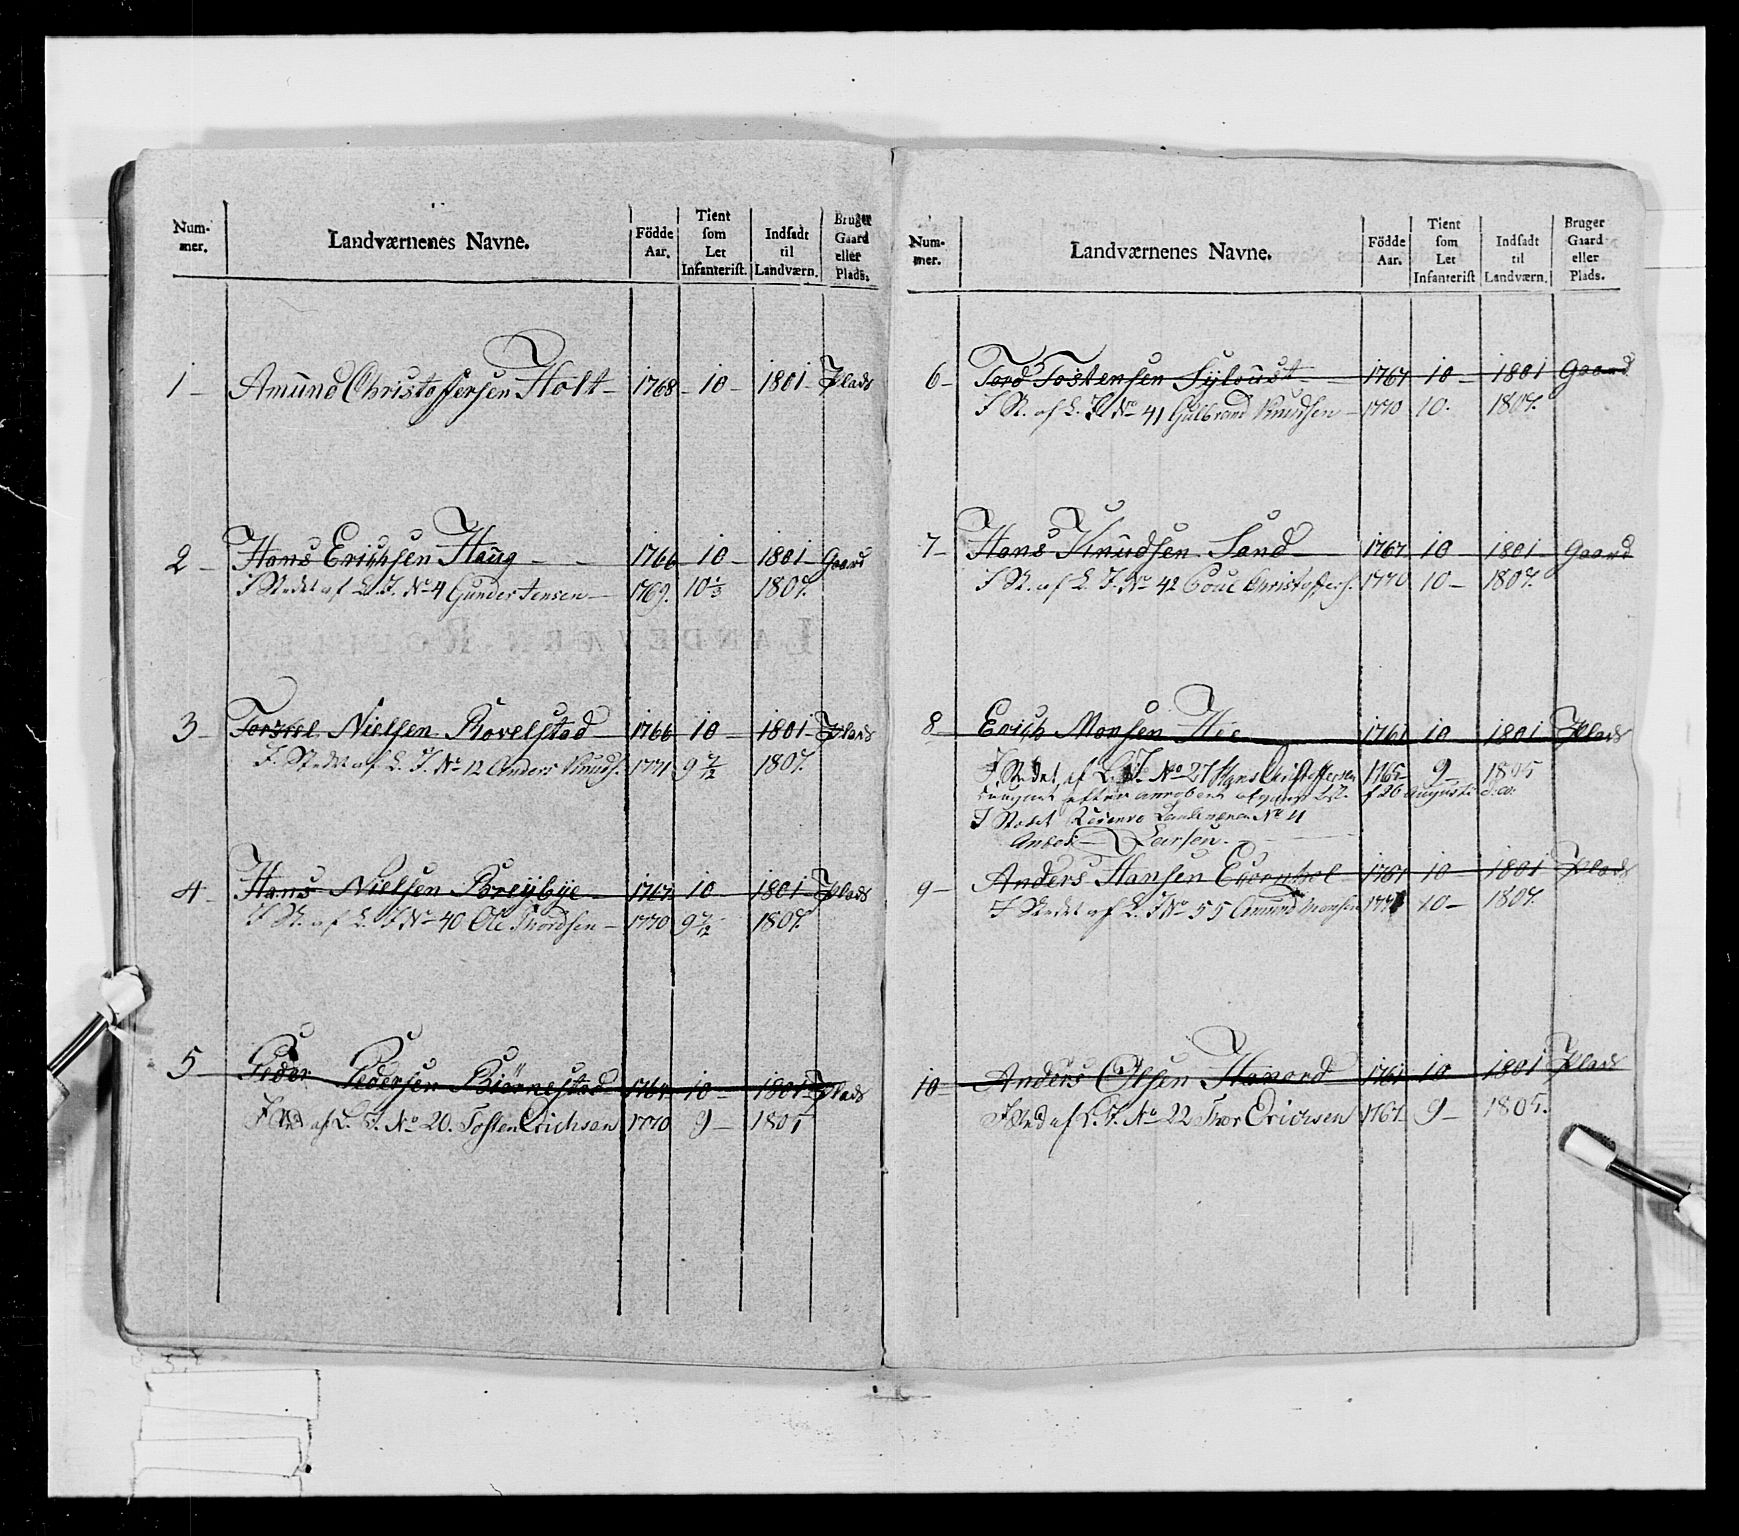 Num-mer. Landværnenes Navne. Födde Aar. Tient som Let Infanterist. Indsadt til Landværn. Bruger Gaard eller Plads.
1 – Amund Christoffersen Holt – 1768 – 10 – 1801 – Plads
2 – Hans Erichsen Haug – 1766 – 10 – 1801 – Gaard
I Stedet af L. I. No 4 Gunder Jensen – 1769. 10 1/3 1807.
3 – Nielsen 1766 – 10 – 1801 – Plads
I Stedet af L. I. No 12 Anders Knuds. 1771 9 1807.
4 – Hans Nielsen Breÿbÿe – 1767 10 1801 – Plads
I St. af L. I. No 40 Ole Thordsen – 1770 9 1807.
5 – Peder Pedersen Biörnestad 10 – 1801 – Plads
I Sted af L. I. No 20. Tosten Erichsen 1770 9 –
Num-mer. Landværnenes Navne. Födde Aar. Tient som Let Infanterist Indsadt til Landværn. Bruger Gaard eller Plads.
6 – Tord Tostensen 1767 10 – 1801 Gaard
I St. af L. I. No 41 Gulbrand Knudsen – 1770 10. 1807.
7 – Hans Knudsen Sand – 1767 10 – 1801 – Gaard
I St. af L. I. No 42 Poul Christoffers. 1770 10 – 1807.
8 – Erich Monsen 10 – 1801 Plads
I Stedet af L. I. No 27 Hans Christoffersen 1765 9 – 1805
26 Augusti
I Stedet Reserve Landværn No 11
Larsen.
9 – Anders Hansen 10 – 1801 Plads
I Stedet af L. I. No 55 Amund Monsen 10 – 1807.
10 – Anders Olsen 10 – 1801 Plads
I Sted af L. I. No 22 Thor Erichsen 9 – 1805.